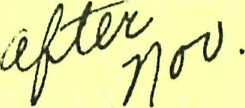 after
Nov.